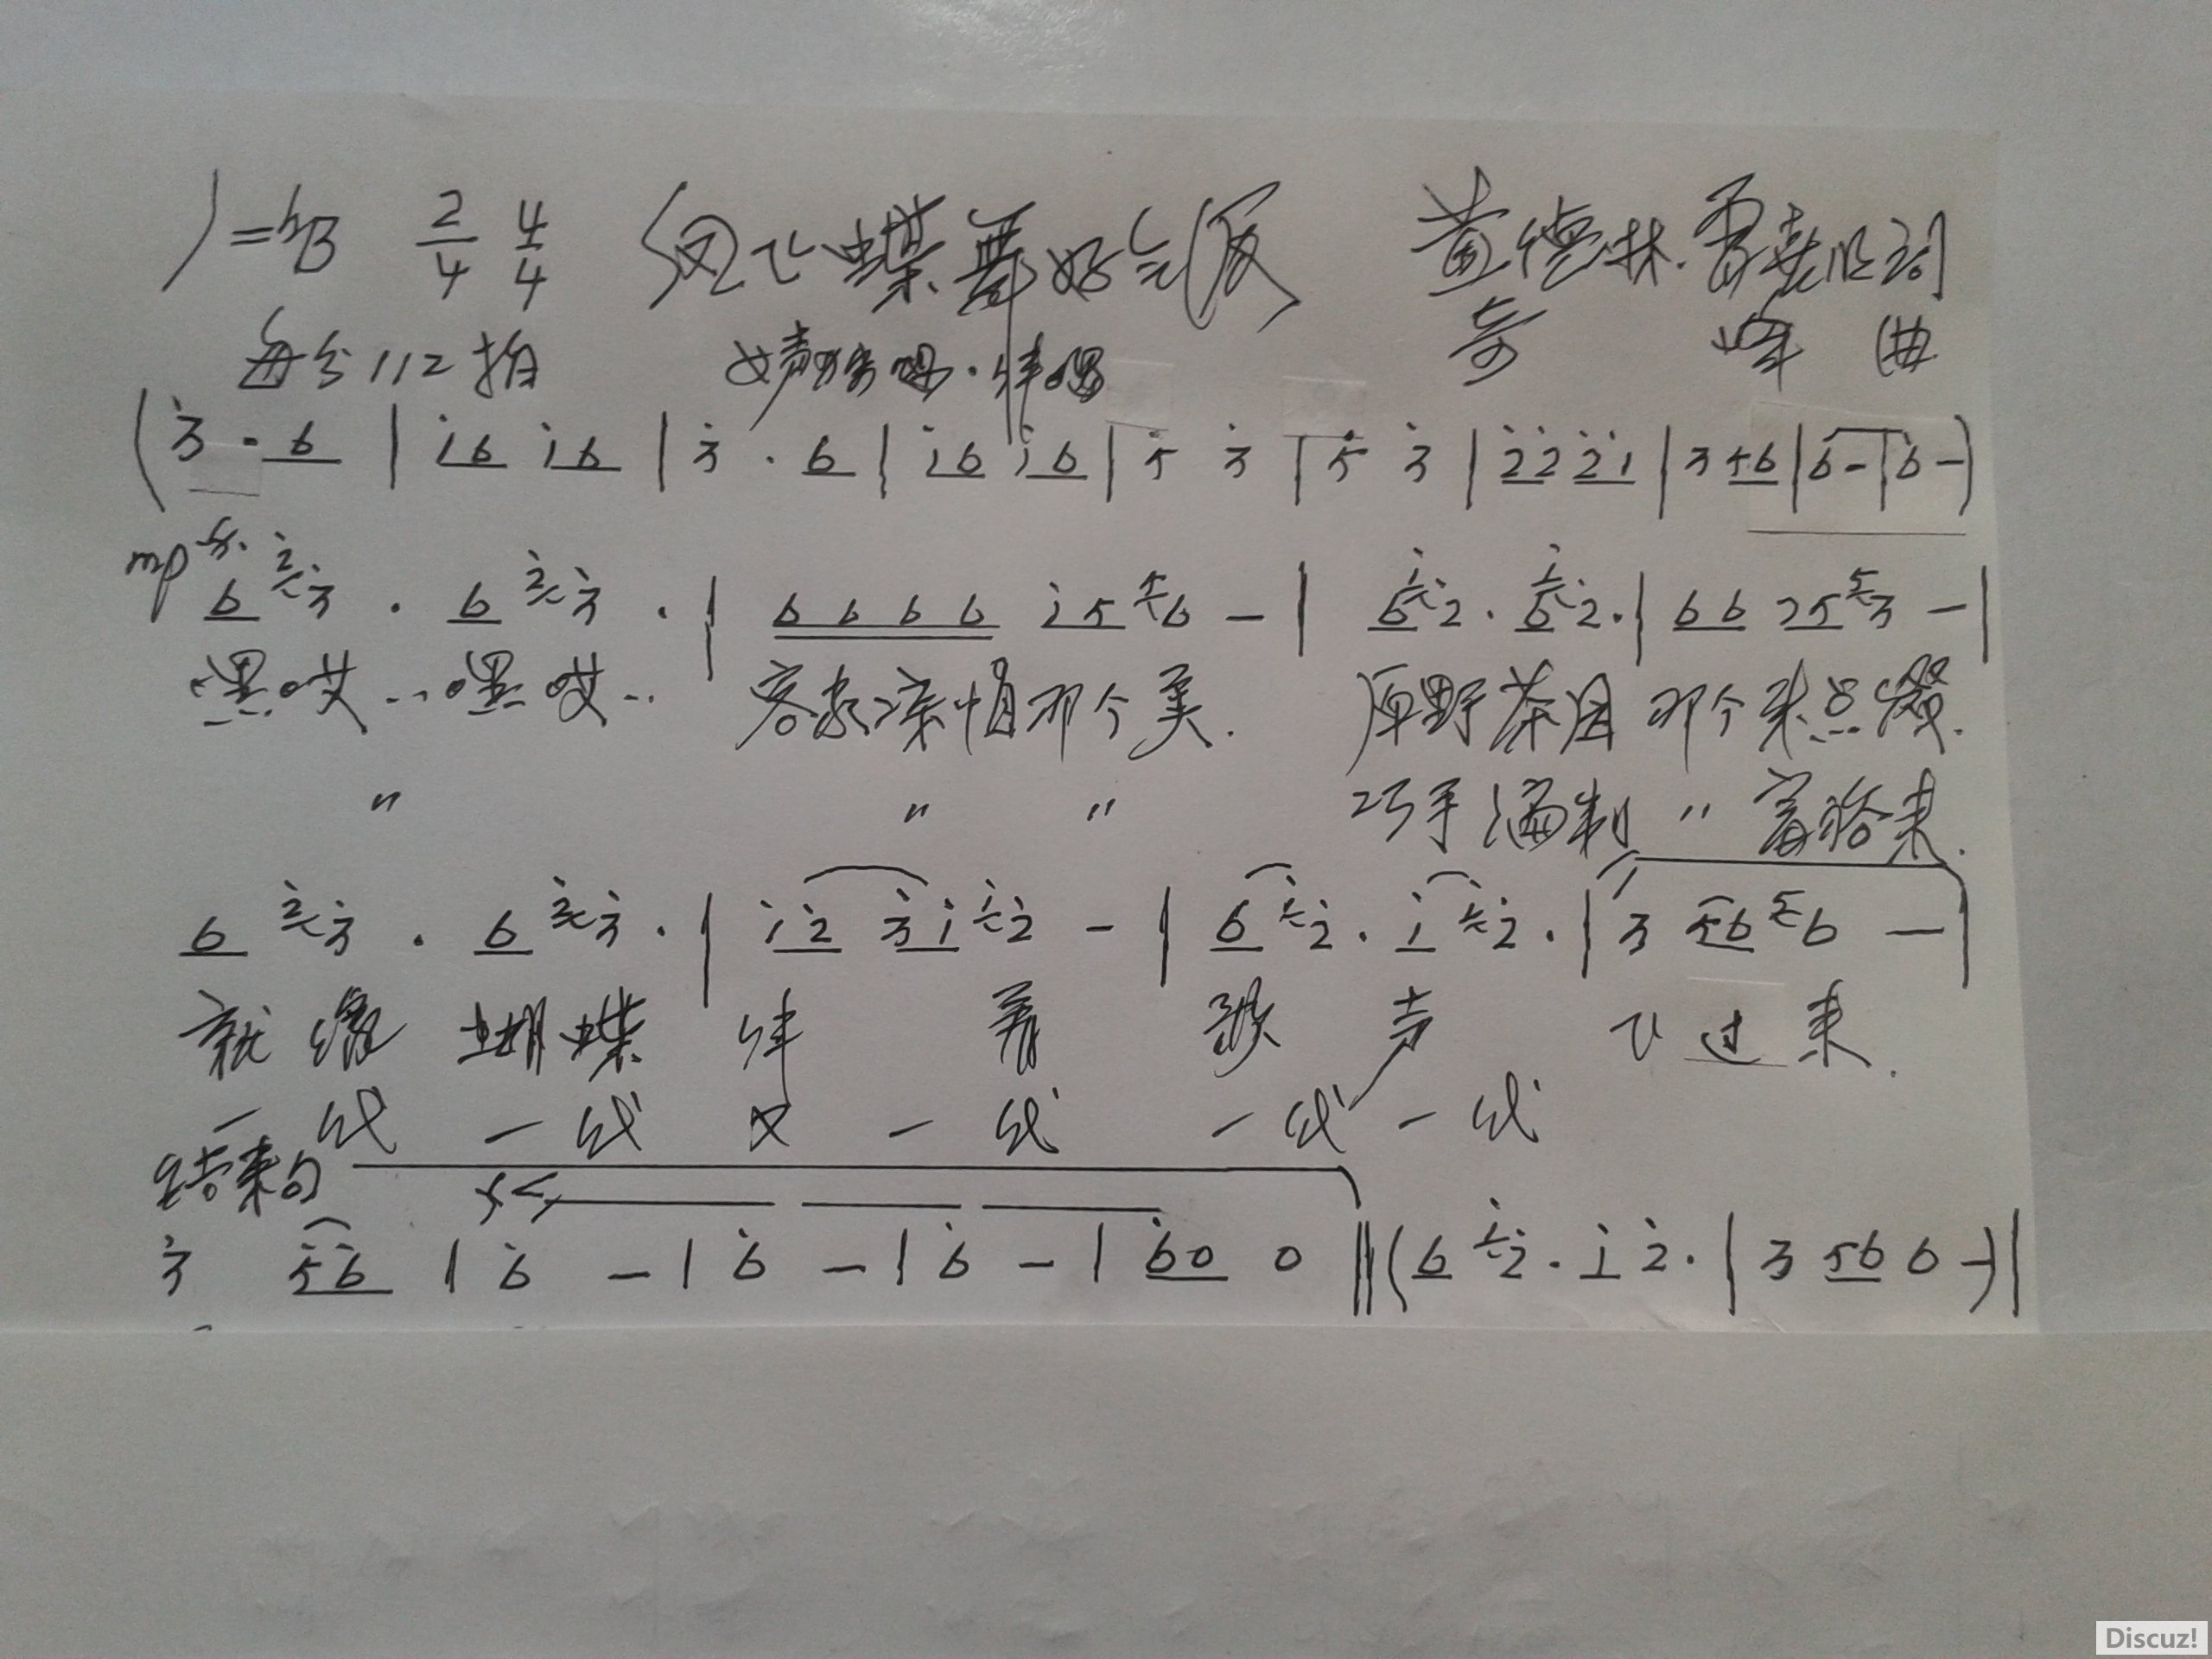 1=♭B 2/4 4/4 凤飞蝶舞好气派 黄德林. 词
每分112拍 女声独唱·伴唱 奇峰 曲
(3̇·6 | i̇6 i̇6 | 3̇·6 | i̇6 i̇6 | 5̇ 3̇ | 5̇ 3̇ | 2̇2̇ 2̇1̇ | 3 56 | 6 - | 6 -)
mp
6 2̇3̇· 6 2̇3̇· | 6 6 6 6 i̇5 56 - | 6 i̇2̇· 6 i̇2̇· | 66 25 53 - |
嘿哎… 嘿哎… 客家深情那个美. 原野茶园那个来点缀.
〃 〃 〃 巧手编制 〃
6 2̇3̇· 6 2̇3̇· | i̇2̇ 3̇i̇ i̇2̇ - | 6 i̇2̇· i̇ i̇2̇· | 3 56 56 - |
就像蝴蝶伴着歌声飞过来.
一代一代又一代一代一代
结束句
3̇ 5̇6̇ | 6̇ - | 6̇ - | 6̇ - | 6̇0 0 ‖ (6 i̇2̇· i̇ 2̇· | 3 56 6 -) |
Discuz!